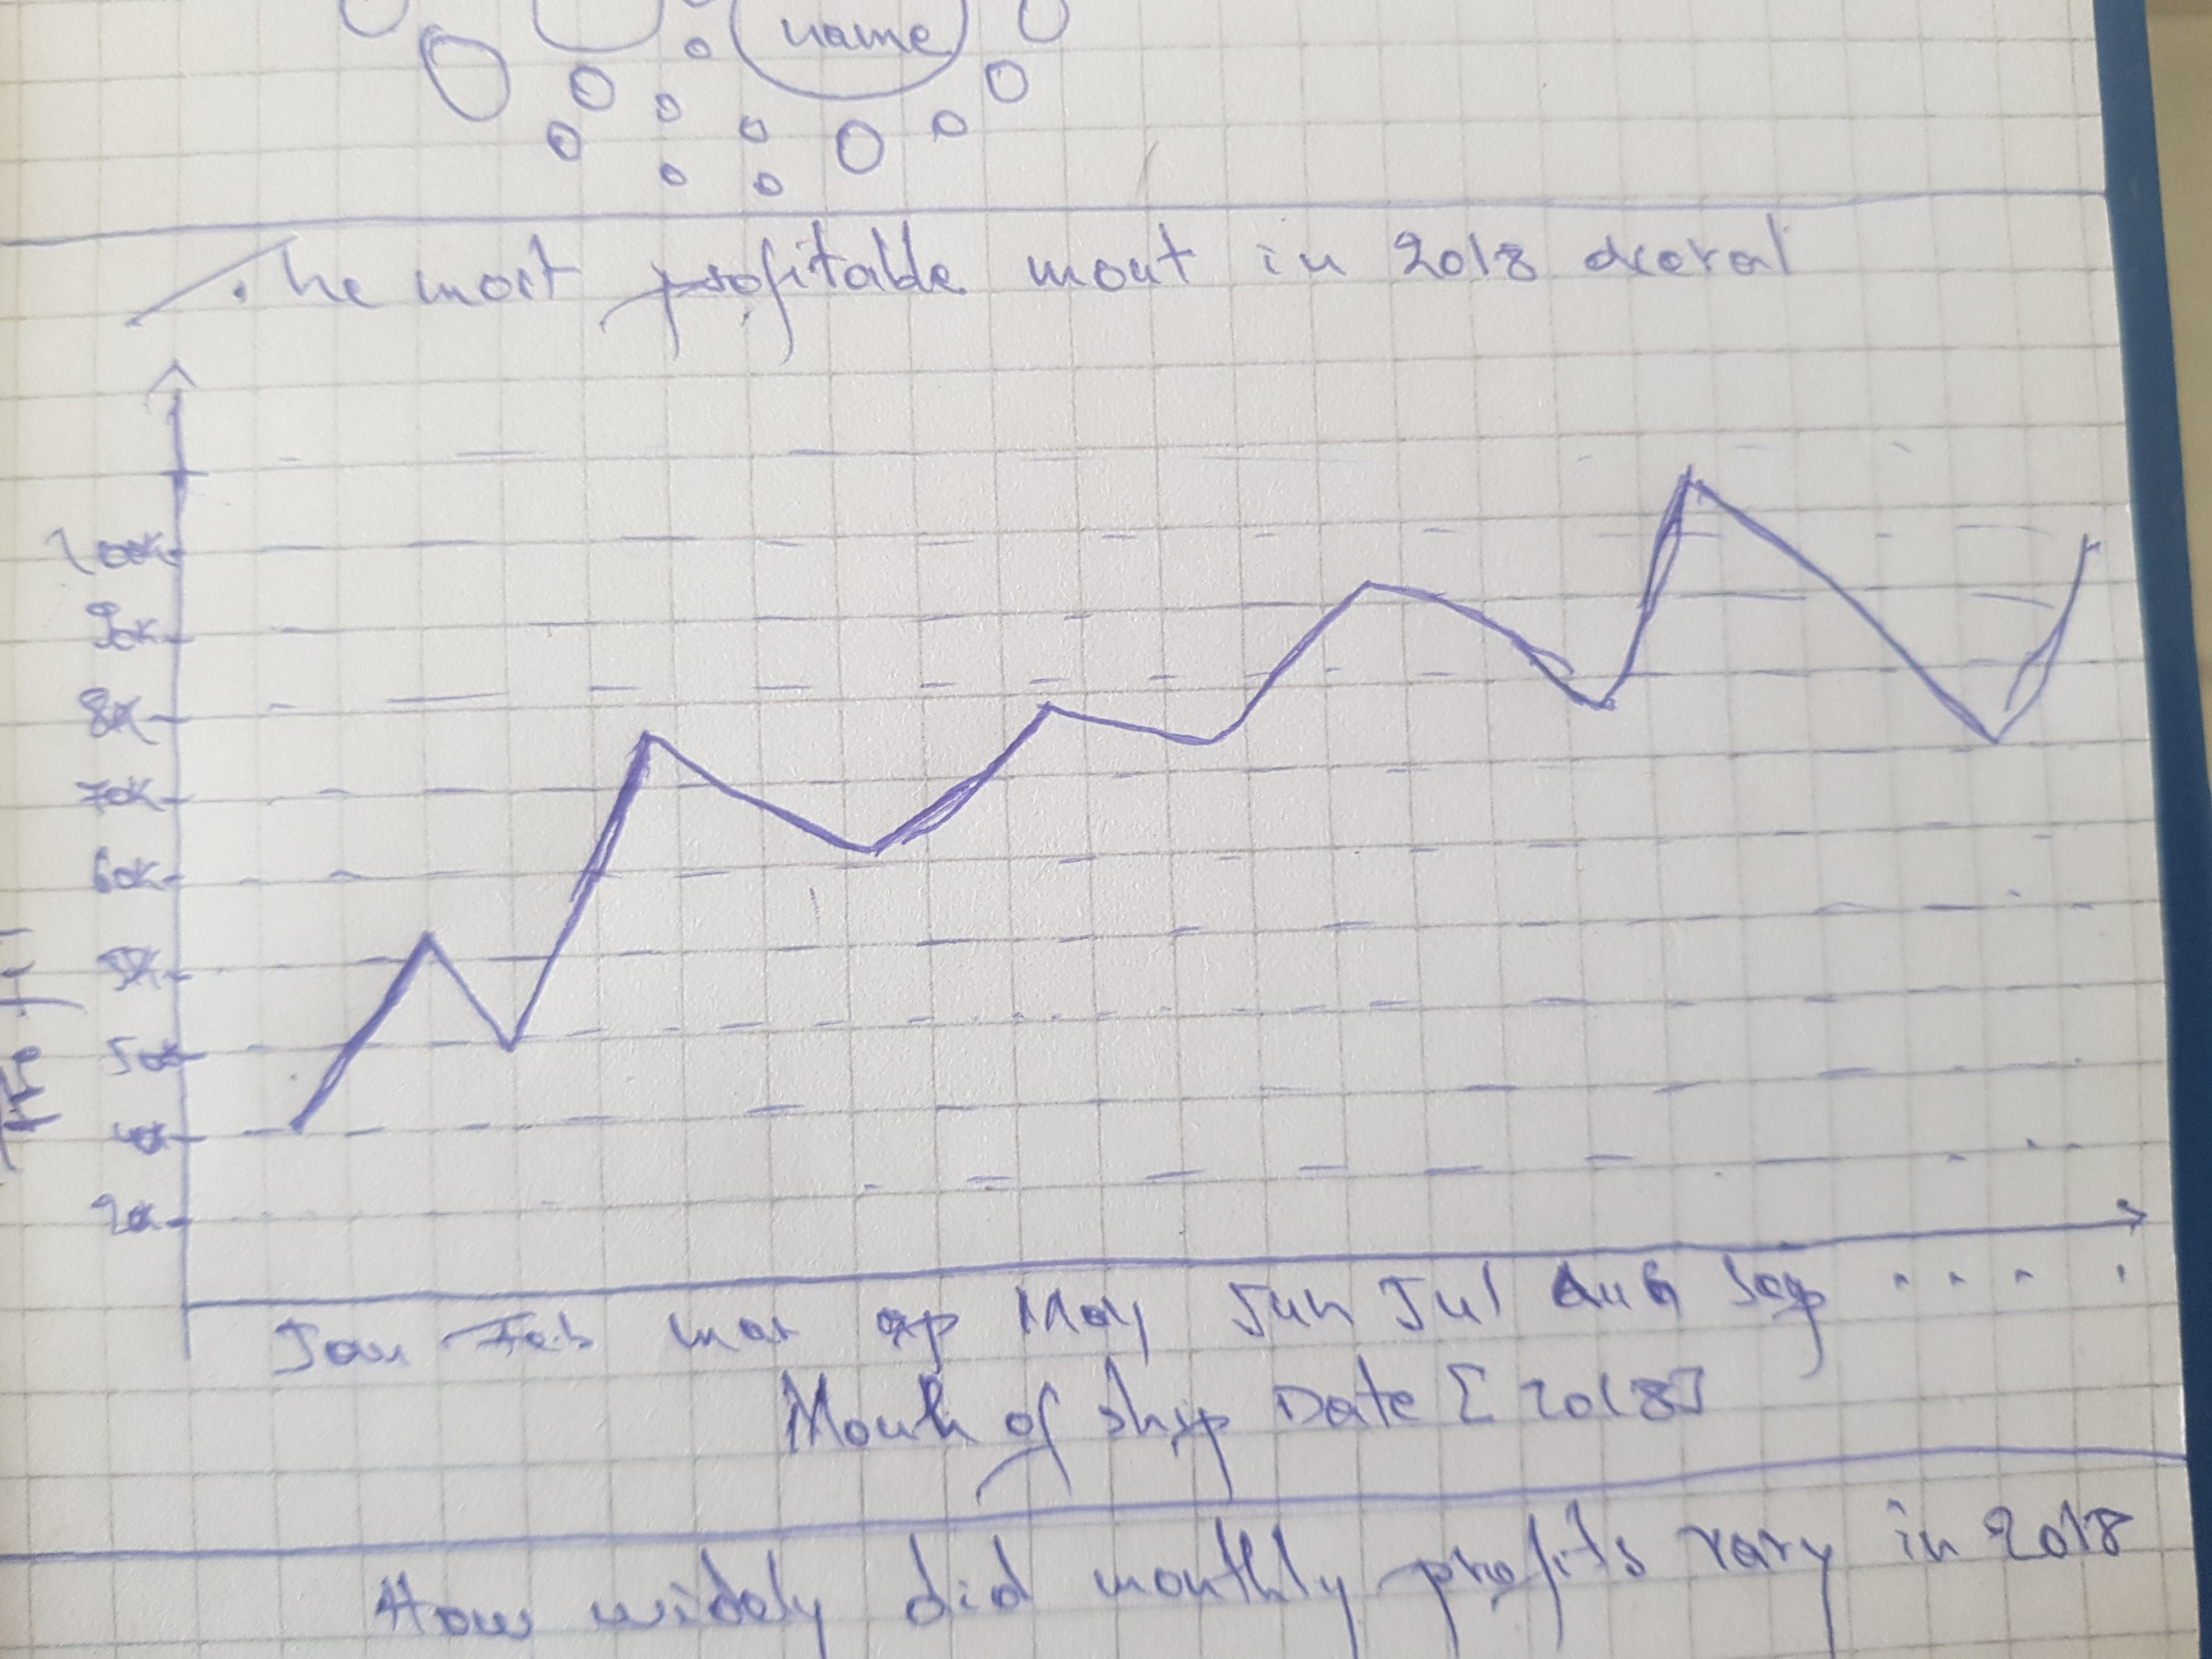 name
The mort profitable mout in 2018 deeral
100K
90K
80K
70K
60K
55K
50K
40K
20K
Jan Feb mar ap May Jun Jul auG Sep . . . .
Mouth of ship Date [2018]
How widely did monthly profits vary in 2018